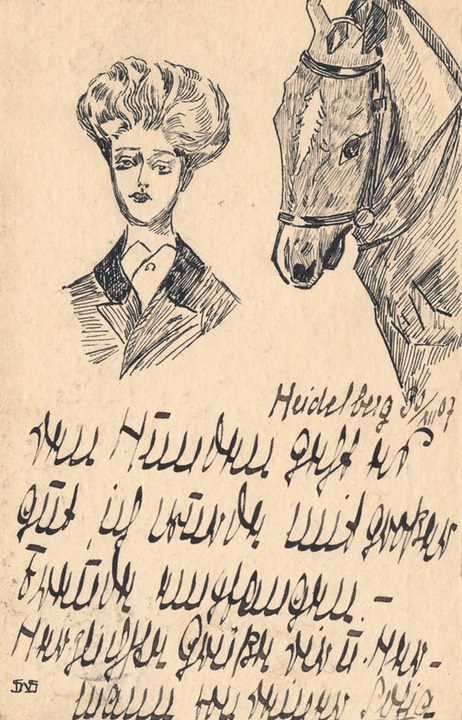 Heidelberg 30/XII 07
den Hunden geht es
gut, ich wurde mit großer
Freude empfangen. –
Herzlichste Grüße dir u. Her-
mann von deiner